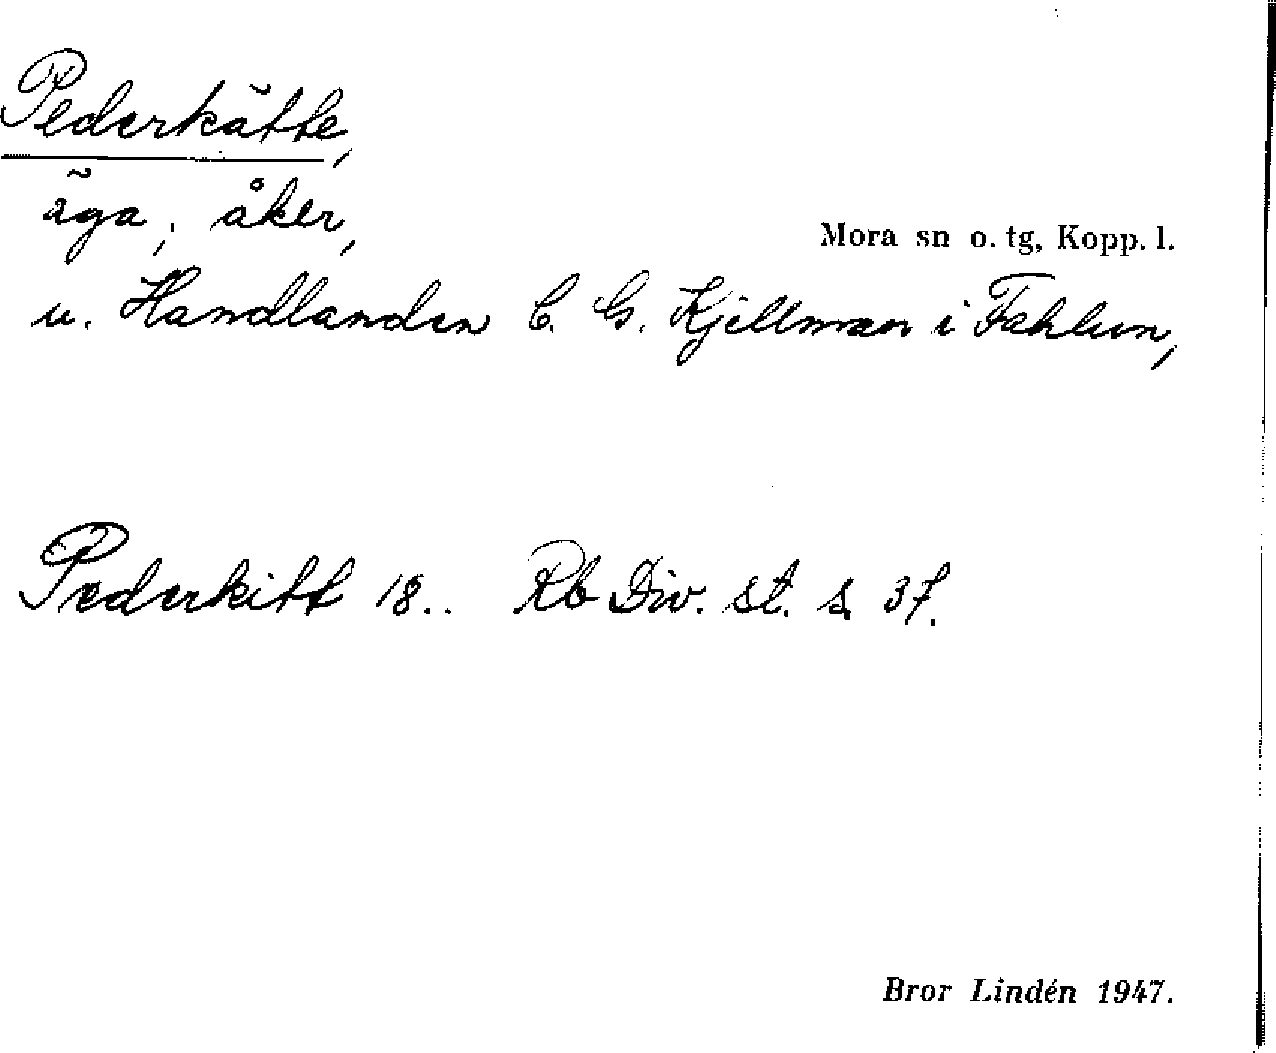 Pederkätte,
äga, åker,
Mora sn o. tg, Kopp. l.
u. Handlanden C. G. Kjellman i Fahlun,
Pederkitt 18.. Rb Div. st. s. 37.
Bror Lindén 1947.